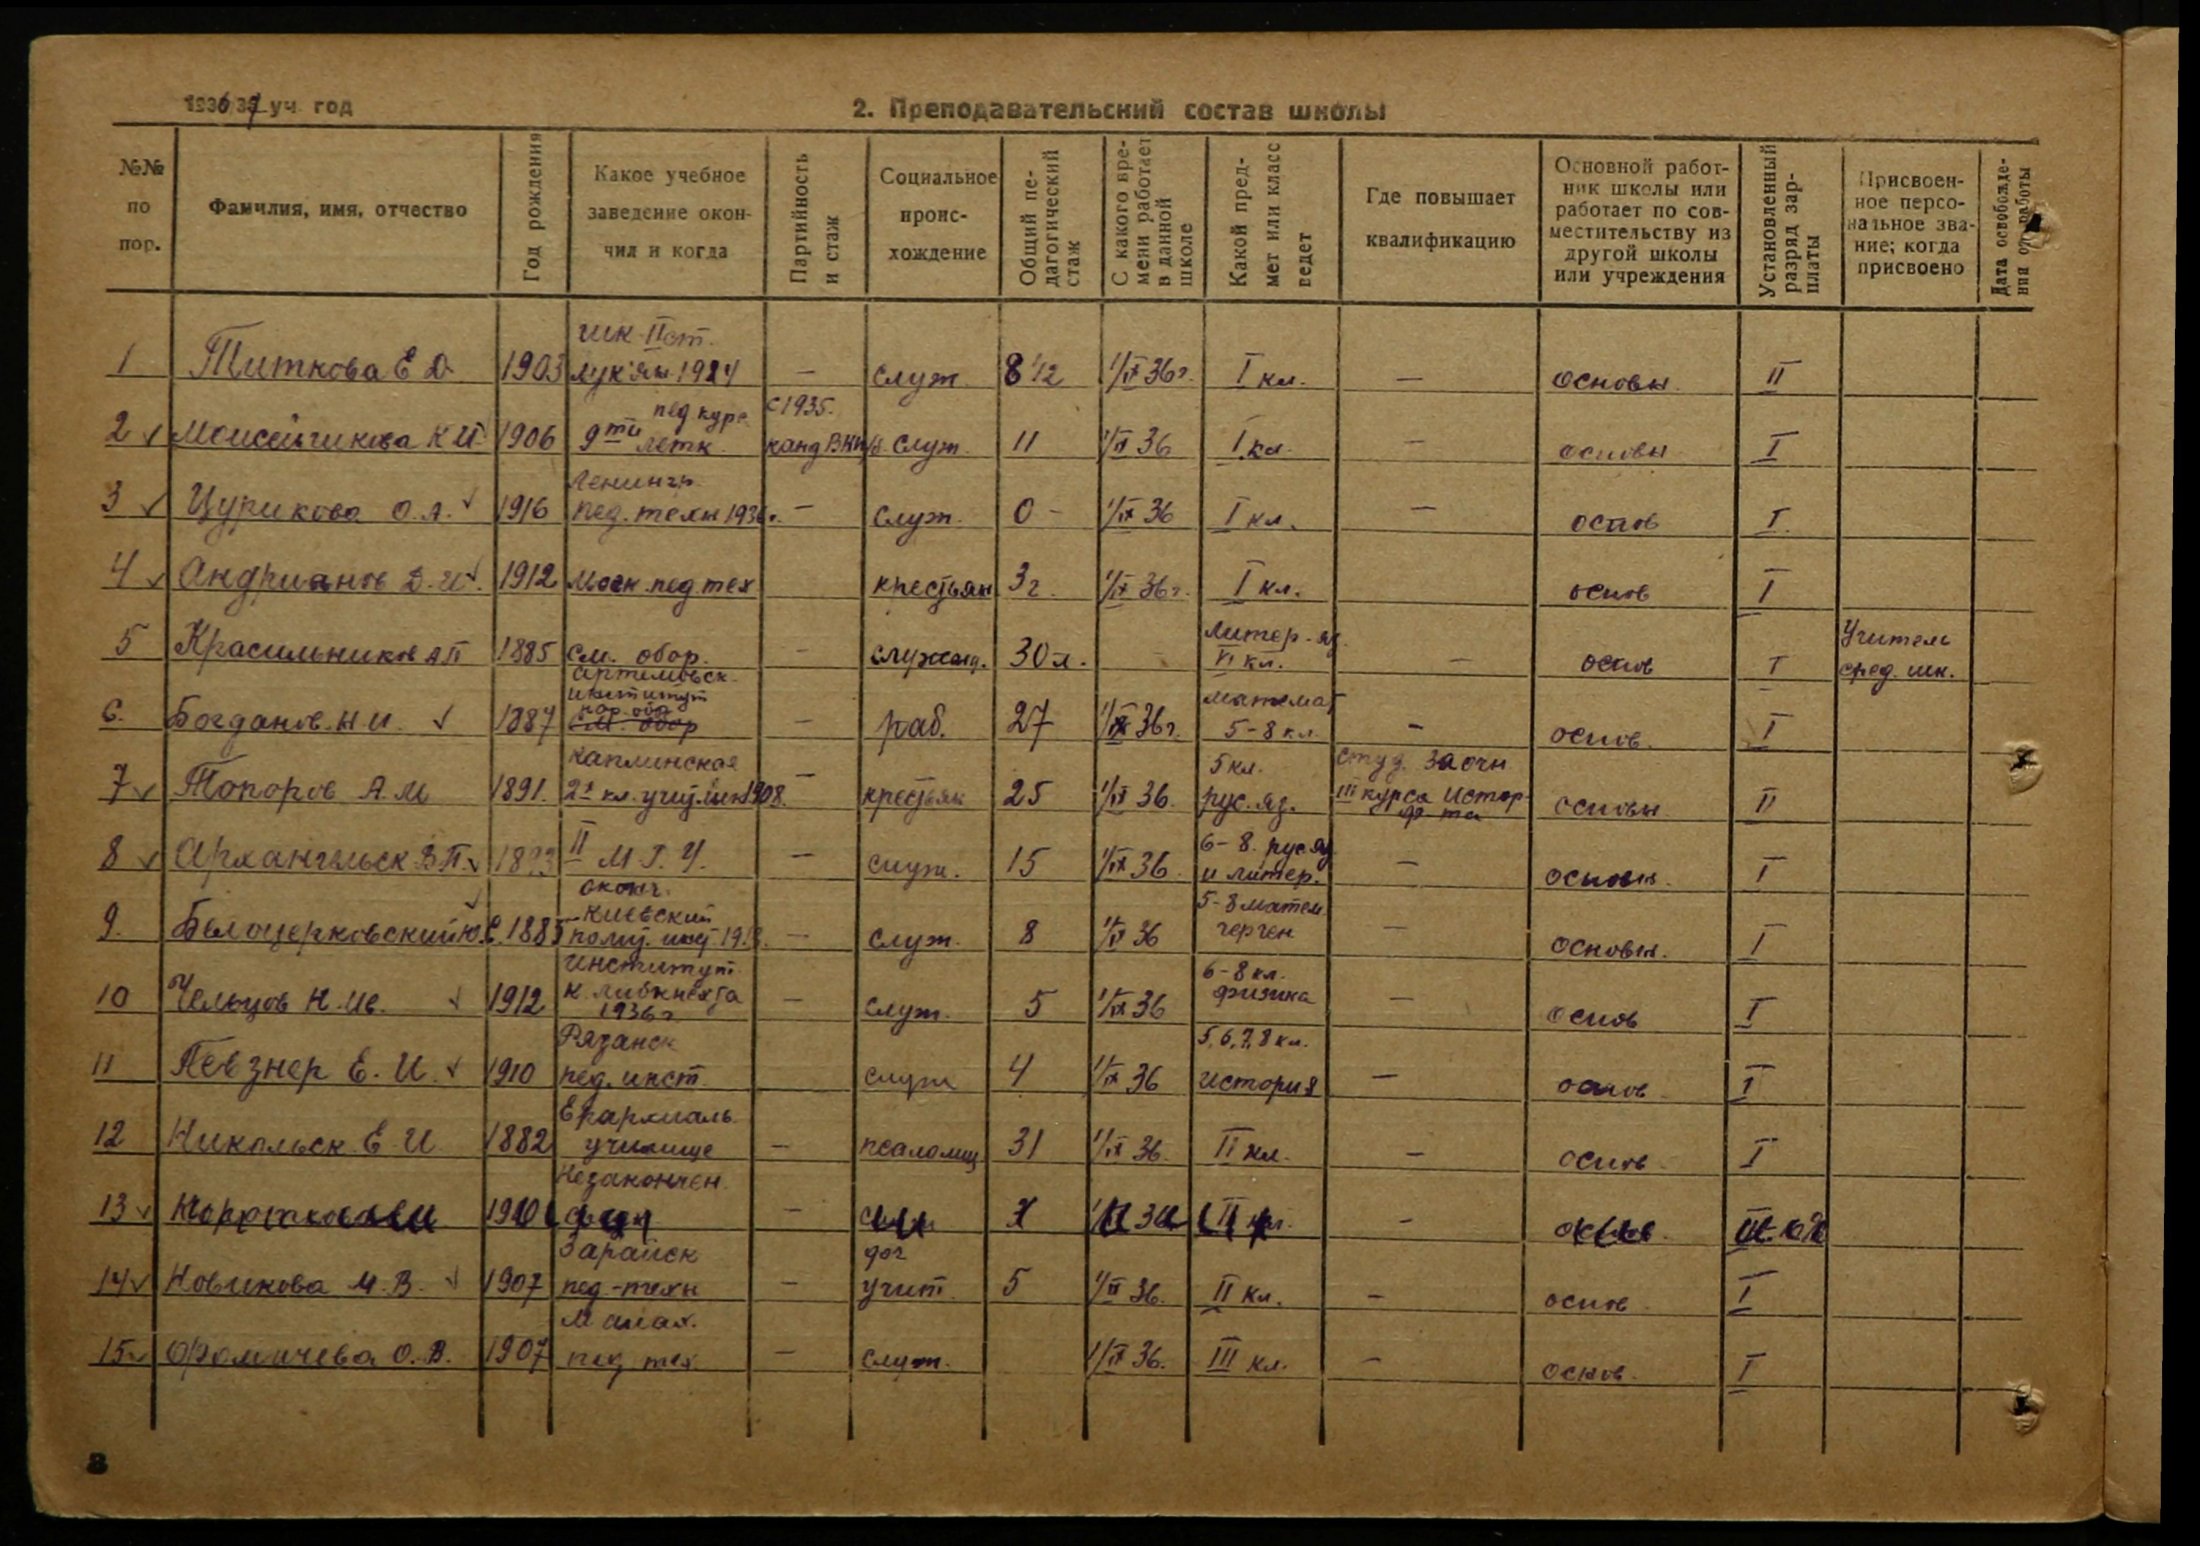 1936/37 уч. год
2. Преподавательский состав школы
№№ по пор.
Фамилия, имя, отчество
Год рождения
Какое учебное заведение окончил и когда
Партийность и стаж
Социальное происхождение
Общий педагогический стаж
С какого времени работает в данной школе
Какой предмет или класс ведет
Где повышает квалификацию
Основной работник школы или работает по совместительству из другой школы или учреждения
Установленный разряд зарплаты
Присвоенное персональное звание; когда присвоено
Дата освобождения от работы
1 Титкова Е Д 1903 шк. II ст. 1924 — служ. 8 1/2 1/IX 36 г. I кл. — основн. II
2 Моисейчикова К И 1906 9ти летк. пед. курс с 1935. канд ВКП/б. служ. 11 1/IX 36 I кл. — основн I
3 Цурикова О. А. 1916 Ленингр. пед. техн 1936 г. — служ. 0 - 1/IX 36 I кл. — основ I
4 Андрианов Д. И. 1912 Моск. пед. тех крестьян 3 г. 1/IX 36 г. I кл. основ I
5 Красильников АП 1885 см. обор. — служащ. 30 л. - литер-яз. VI кл. — основ I Учитель сред. шк.
6. Богданов Н И. 1887 Артемовск. институт нар. обр см. обор — раб. 27 1/IX 36 г. математ 5-8 кл. — основ. I
7 Топоров А. М 1891. каплинская 2х кл. учит. 1908. — крестьян 25 1/IX 36. 5 кл. рус. яз. студ. заочн III курса истор. ф-та основн II
8 Архангельск В П. II М. Г. У. — служ. 15 1/IX 36. 6-8. рус яз и литер. — основн. I
9. Белоцерковский Ю. С. 1885 оконч. Киевский — служ. 8 1/IX 36 5-8 матем. черчен — основн. I
10 Чельцов Н. Ив. 1912 институт К. Либкнехта 1936 г — служ. 5 1/IX 36 6-8 кл. физика — основ I
11 Певзнер Е. И. 1910 Рязанск пед. инст. служ 4 1/IX 36 5, 6, 7, 8 кл. история — основ I
12 Никольск. Е И 1882 Епархиаль. училище — псаломщ 31 1/IX 36. II кл. — основ I
13 незакончен. — 1/IX 36 II кл. — основ
14 Новикова М. В. 1907 Зарайск пед-техн — доч учит. 5 1/IX 36. II кл. — основ I
15 Фомичева О. В. 1907 Малах. пед тех — служ. 1/IX 36. III кл. — основ. I
8